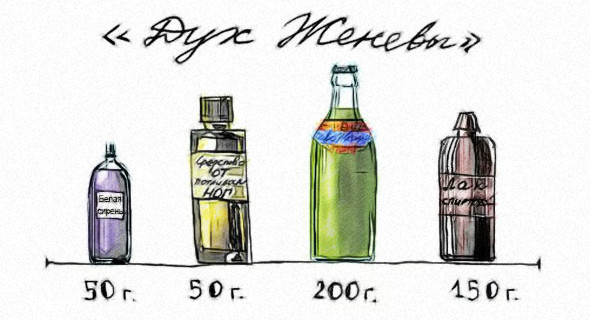 « Дух Женевы»
Белая
сирень
Средство
ОТ
потливости
НОГ
Лак
спиртов
50 г.
50 г.
200 г.
150 г.